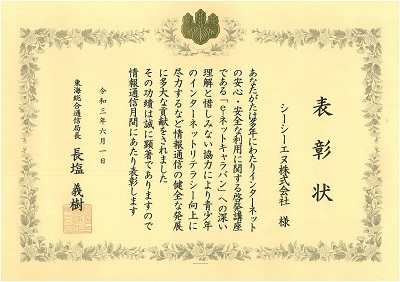 表彰状
シーシーエヌ株式会社 様
あなたがたは多年にわたりインターネット
の安心・安全な利用に関する啓発講座
である「e-ネットキャラバン」への深い
理解と惜しみない協力により青少年
のインターネットリテラシー向上に
尽力するなど情報通信の健全な発展
に多大な貢献をされました
その功績は誠に顕著でありますので
情報通信月間にあたり表彰します
令和三年六月一日
東海総合通信局長 長塩義樹